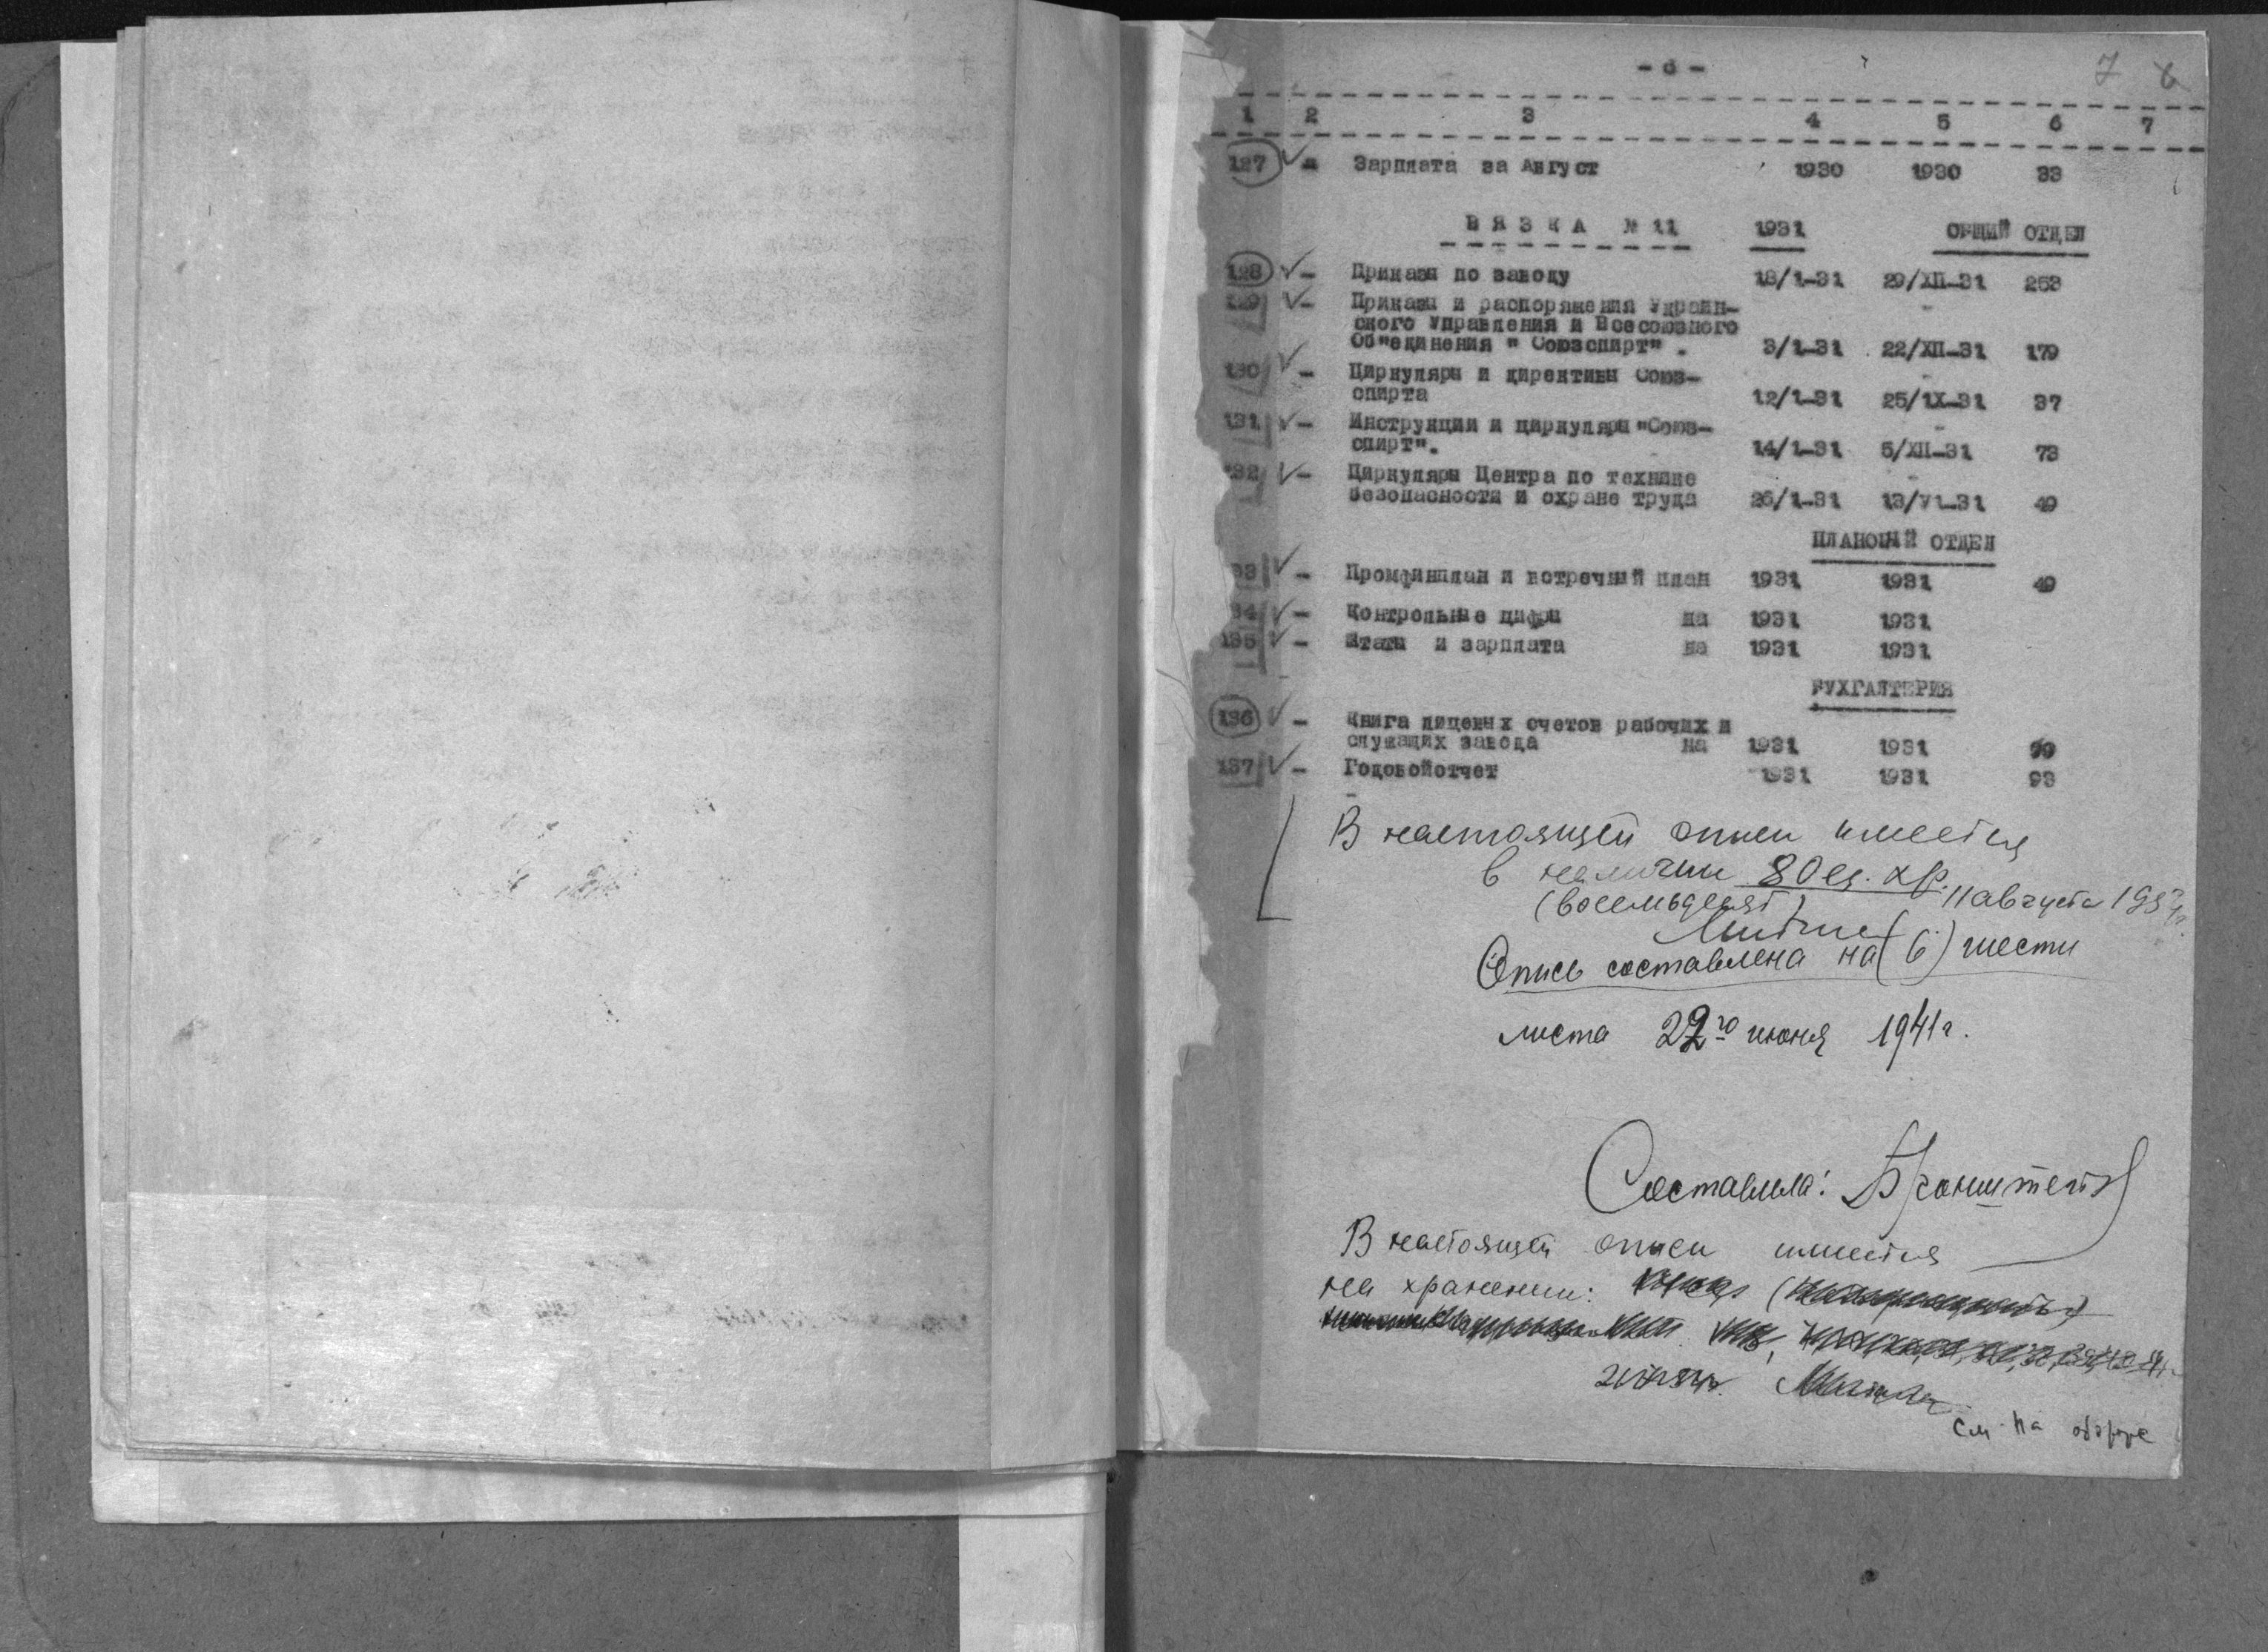 7 6
- 6 -
1 2 3 4 5 6 7
127 - Зарплата за Август 1930 1930 33
ВЯЗКА № 11 1931 ОБЩИЙ ОТДЕЛ
128 - Приказы по заводу 18/1-31 29/ХП-31 253
129 - Приказы и распоряжения Украин-
ского Управления и Всесоюзного
Об"единения " Союзспирт" . 3/1-31 22/ХП-31 179
130 - Циркуляры и директивы Союз-
спирта 12/1-31 25/1Х-31 37
131 - Инструкции и циркуляры "Союз-
спирт". 14/1-31 5/ХП-31 73
132 - Циркуляры Центра по технике
безопасности и охране труда 26/1-31 13/У1-31 49
ПЛАНОВЫЙ ОТДЕЛ
133 - Промфинплан и встречный план 1931 1931 49
134 - Контрольные цифры на 1931 1931
135 - Штаты и зарплата на 1931 1931
БУХГАЛТЕРИЯ
136 - Книга лицевых счетов рабочих и
служащих завода на 1931 1931 99
137 - Годовойотчет 1931 1931 93
В настоящей описи имеется
в наличии 80 ед. хр.
(восемьдесят) 11 августа
Опись составлена на (6) шести
листа 22го июня 1941 г.
Составила: Бронштейн
В настоящей описи имеется
на хранении:
см. на обороте